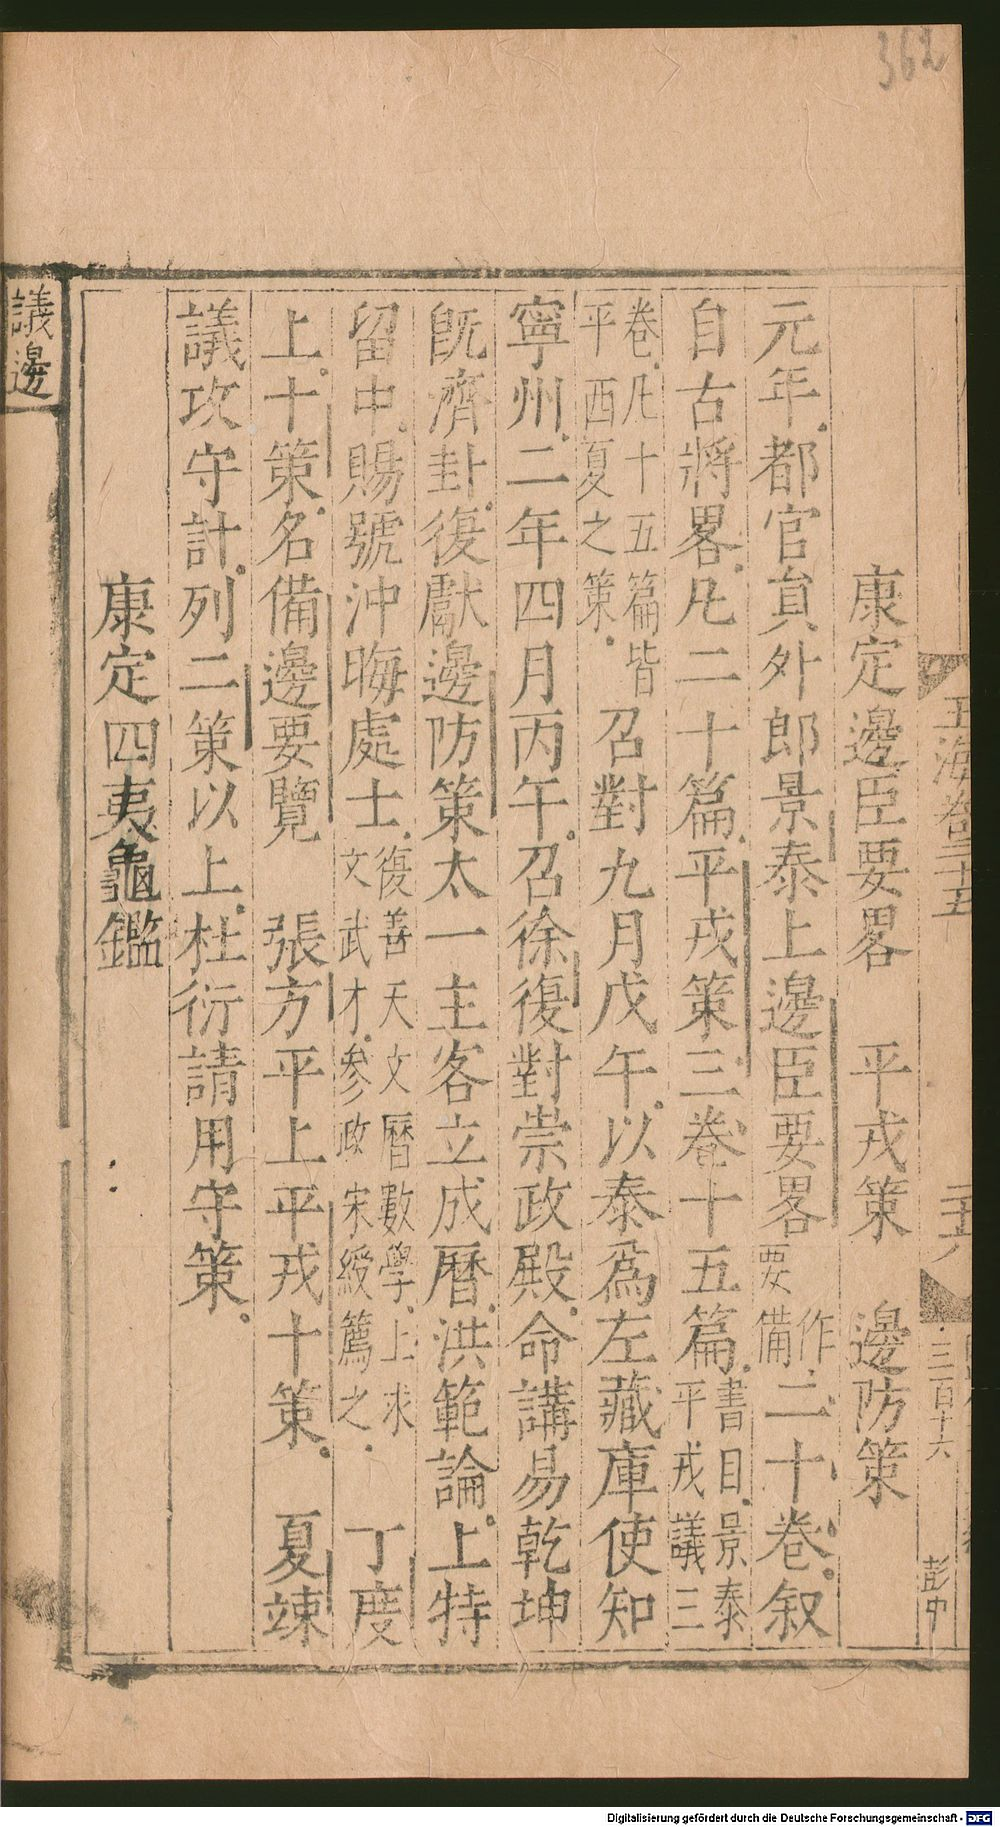 362
玉海卷二十五
二十八
三百十六
彭中
康定邊臣要畧　平戎策　邊防策
元年都官員外郎景泰上邊臣要畧要備作二十卷叙
自古將畧凡二十篇平戎策三卷十五篇書目景泰平戎議三
卷凡十五篇皆平西夏之策召對九月戊午以泰爲左藏庫使知
寧州二年四月丙午召徐復對崇政殿命講易乾坤
旣濟卦復獻邊防策太一主客立成曆洪範論上特
留中賜號沖晦處士復善天文曆數學上求文武才参政宋綬薦之丁度
上十策名備邊要覽　張方平上平戎十策　夏竦
議攻守計列二策以上杜衍請用守策
康定四夷龜鑑
議邊
Digitalisierung gefördert durch die Deutsche Forschungsgemeinschaft - DFG